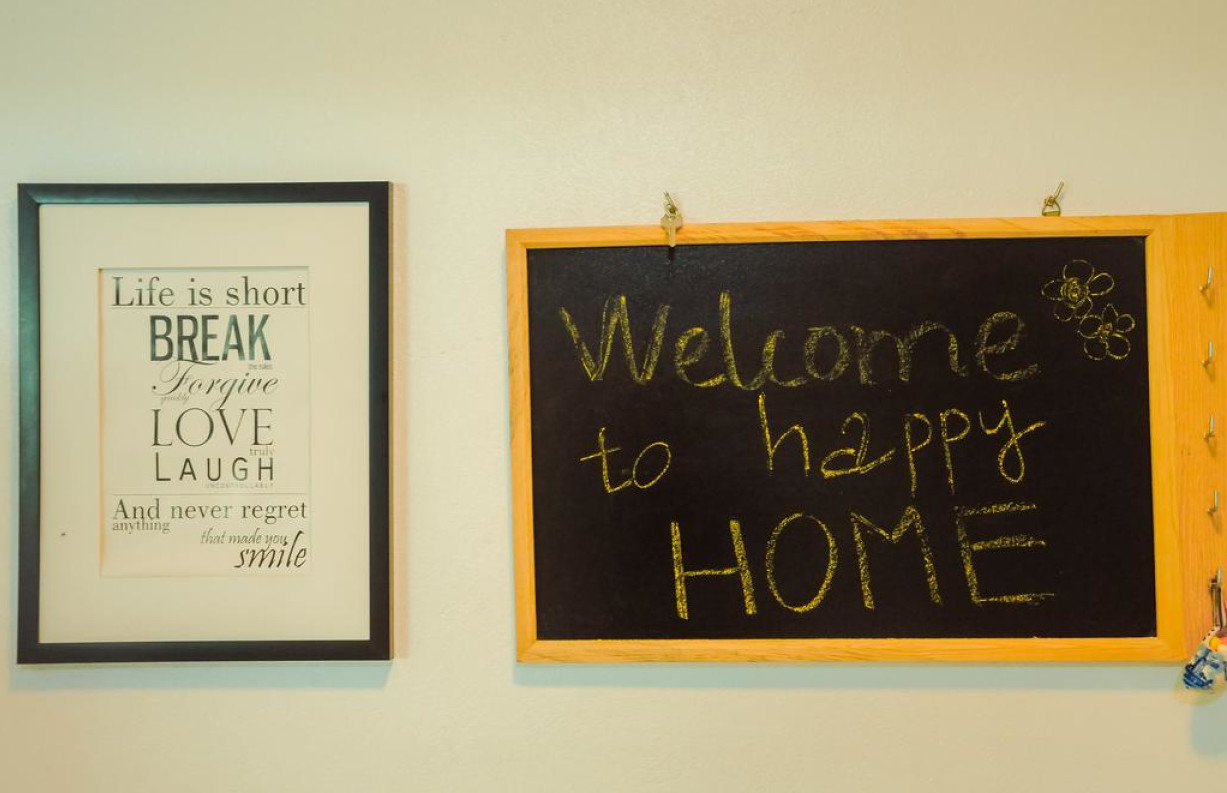 Life is short
BREAK
the rules
Forgive
quickly
LOVE
truly
LAUGH
UNCONTROLLABLY
And never regret
anything
that made you
smile
Welcome
to happy
HOME